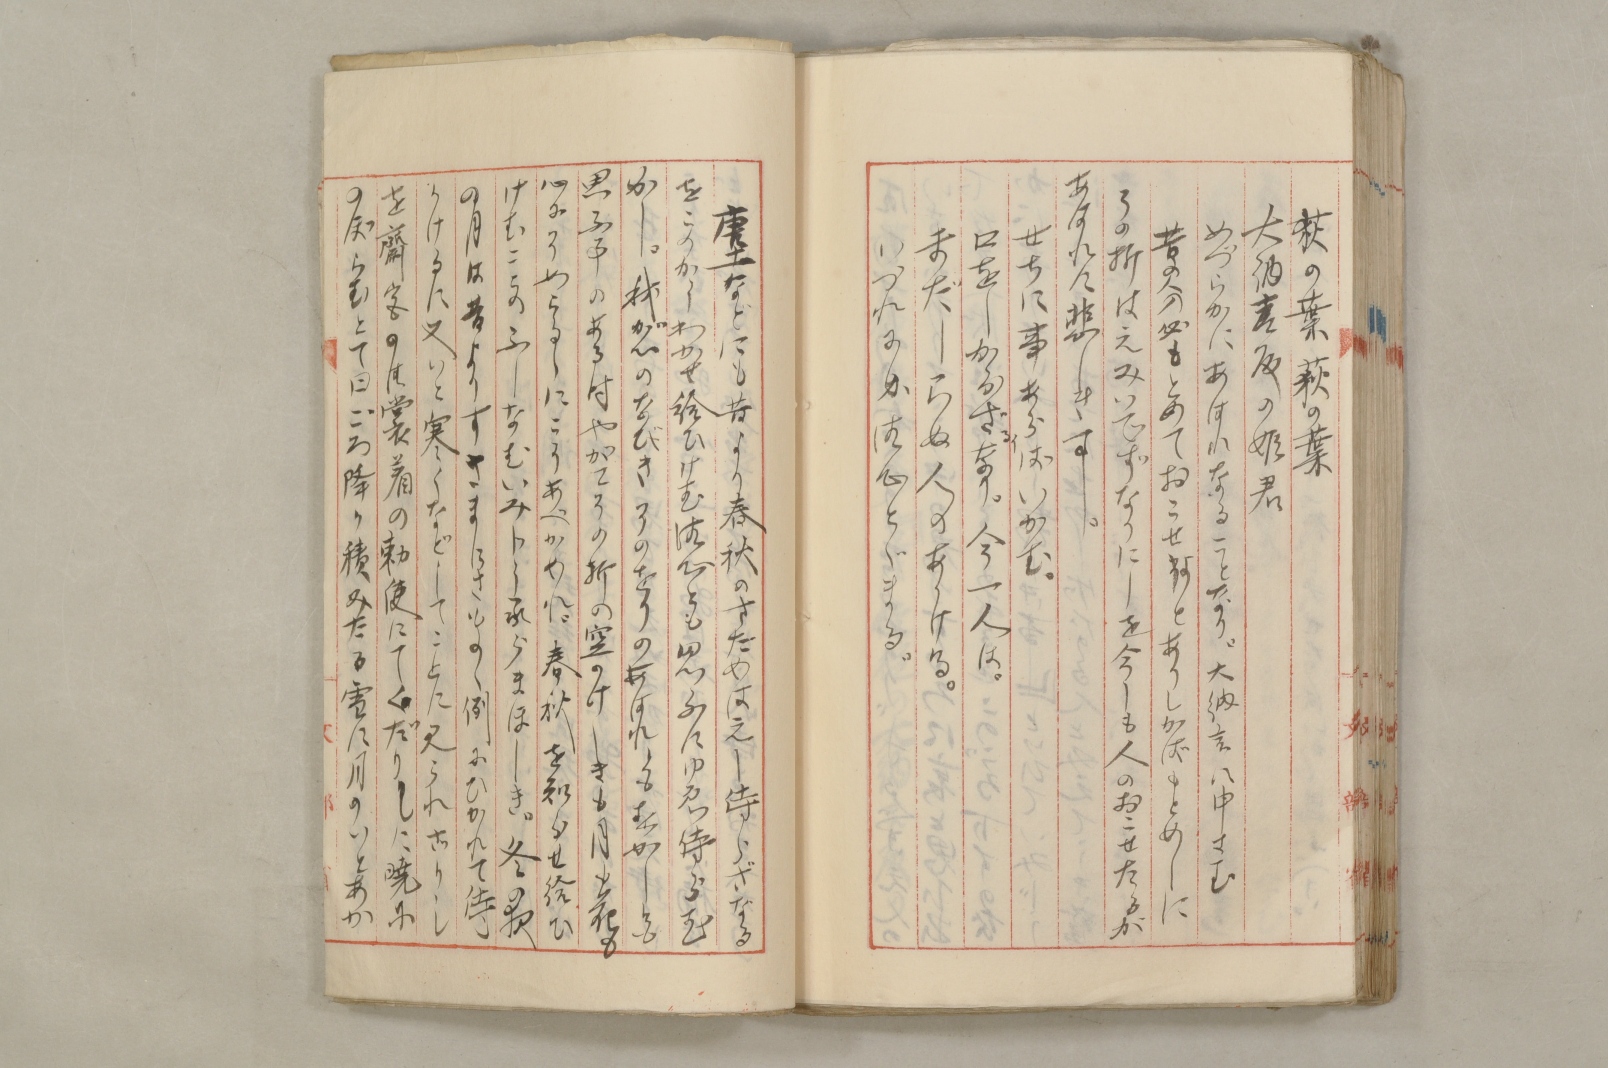 荻の葉萩の葉
大納言殿の姫君
めづらかにあはれなることなり。大納言に申さむ
昔の人の必もとめておこせ給へとありしかばもとめしに
その折はえみいでずなりにしを今しも人のおこせたるが
あはれに悲しきこと。
せちに事あらばいかむ。
口をしかるざるなり。今一人は。
まだしらぬ人のありける。
いづれにか御心とゞまる。
唐土などにも昔より春秋のさだめはえし侍らざなる
をこのかくわかせ給ひけむ御心ども思ふにゆゑ侍らむ
かし。我が心のなびきそのをりのあはれともをかしとも
思ふ事のある時やがてその折の空のけしきも月も花も
心にそめらるゝにこそあべかめれ。春秋を知らせ給ひ
けむことのふしなむいみじう承らまほしき。冬の夜
の月は昔よりすさまじきものゝ例にひかれて侍り
けるに又いと寒くなどしてことに見られざりし
を齋宮の御裳着の勅使にてくだりしに曉に
の
らむとて日ごろ降り積みたる雪に月のいとあか